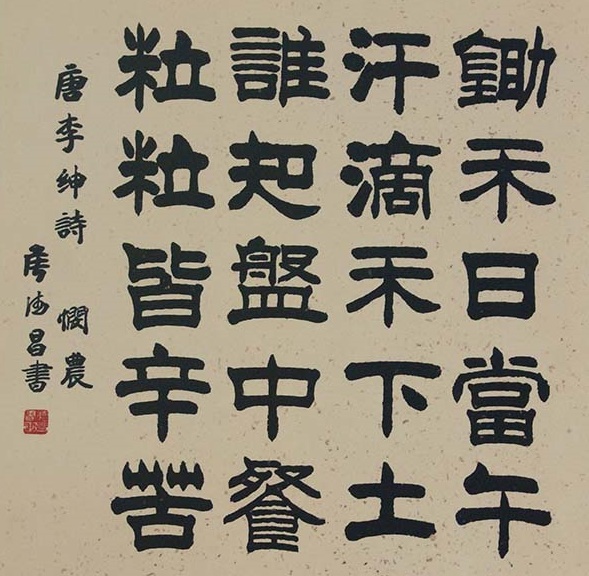 鋤禾日當午
汗滴禾下土
誰知盤中餐
粒粒皆辛苦
唐李紳詩 憫農
海昌書